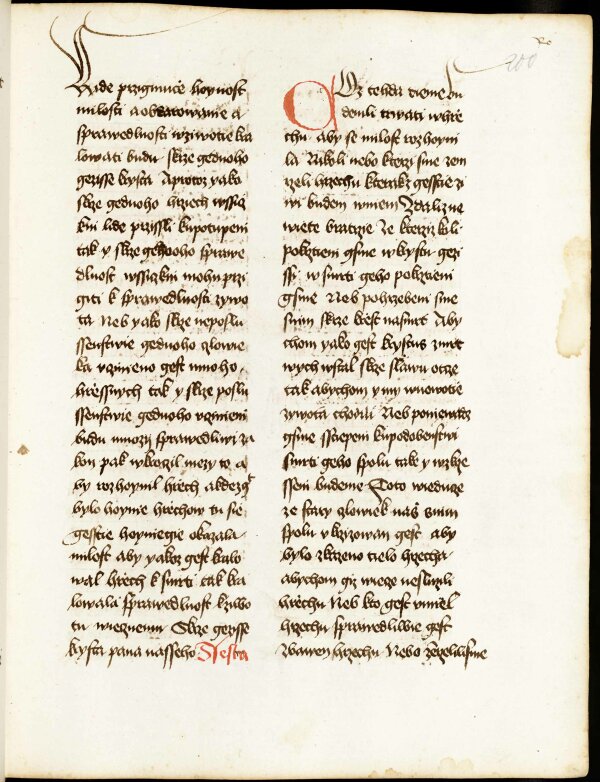 200
lide przigmuce hoynost
milosti a obdarowanie a
sprawedlnosti wziwotie kra
lowati budu skrze gednoho
gezisse krysta A protoz yako
skrze gednoho hrziech wssic
kni lide przissli kupotupeni
tak y skrze gednoho sprawe
dlnost wssiczkni mohu przi
giti k sprawedlnosti zywo
ta Neb yako skrze neposlu
ssenstwie gednoho czlowie
ka vczineno gest mnoho
hriessnych tak y skrze poslu
ssenstwie gednoho vczinieni
budu mnozy sprawedliwi za
kon pak wkroczil mezy to a
by rozhoynil hrziech a kdezgt
bylo hoynie hrziechow tu sie
gesstie hoyniegie okazala
milost aby yakoz gest kralo
wal hrziech k smrti tak kra
lowala sprawedlnost k ziwo
tu wiecznemu Skrze gezisse
krysta pana nasseho Ssesta
Coz tehda dieme bu
demli trwati whrzie
chu aby se milost rozhoyni
la Nikoli nebo kterzi sme zem
rzeli hrziechu kterakz gesstie zi
wi budem wniem Zdaliz ne
wiete bratrzie ze kterziz koli
pokrztieni gsme w krystu gezi
ssi w smrti geho pokrztieni
gsme Neb pohrzebeni sme
snim skrze krzest nasmrt Aby
chom yako gest krystus zmrt
wych wstal skrze slawu otcze
tak abychom y my wnowotie
zywota chodili Neb poniewadz
gsme sstiepeni kupodobenstwi
smrti geho spolu take y wzkrzie
sseni budeme Toto wieduce
ze stary czlowiek nass snim
spolu vkrzizowan gest aby
bylo zkazeno tielo hrziecha
abychom giz wiecze neslúzili
hrziechu Neb kto gest vmrzel
hrziechu sprawedliwie gest
zbawen hrziechu Nebo zemrzelilisme